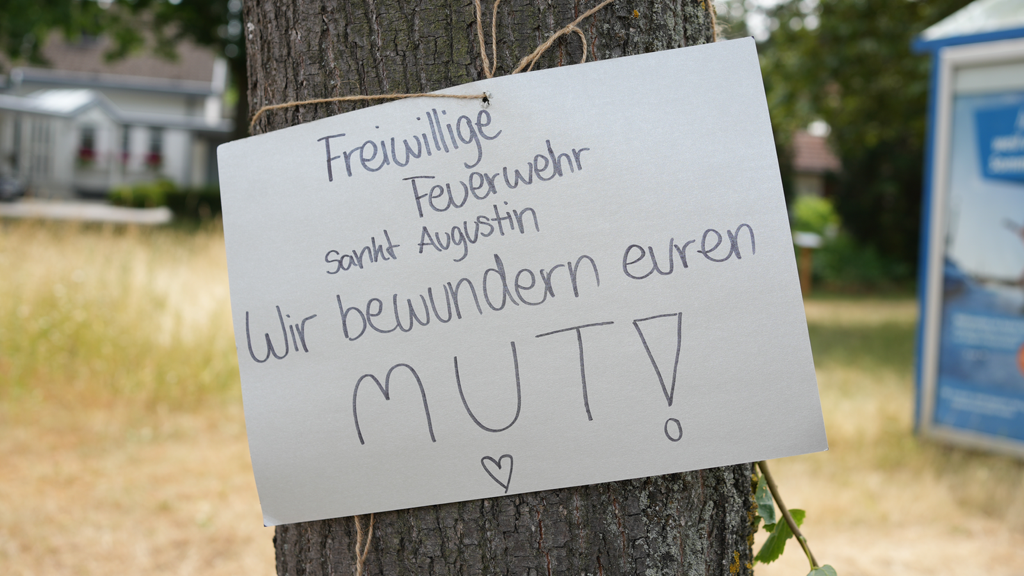 Freiwillige
Feuerwehr
sankt Augustin
Wir bewundern euren
MUT!